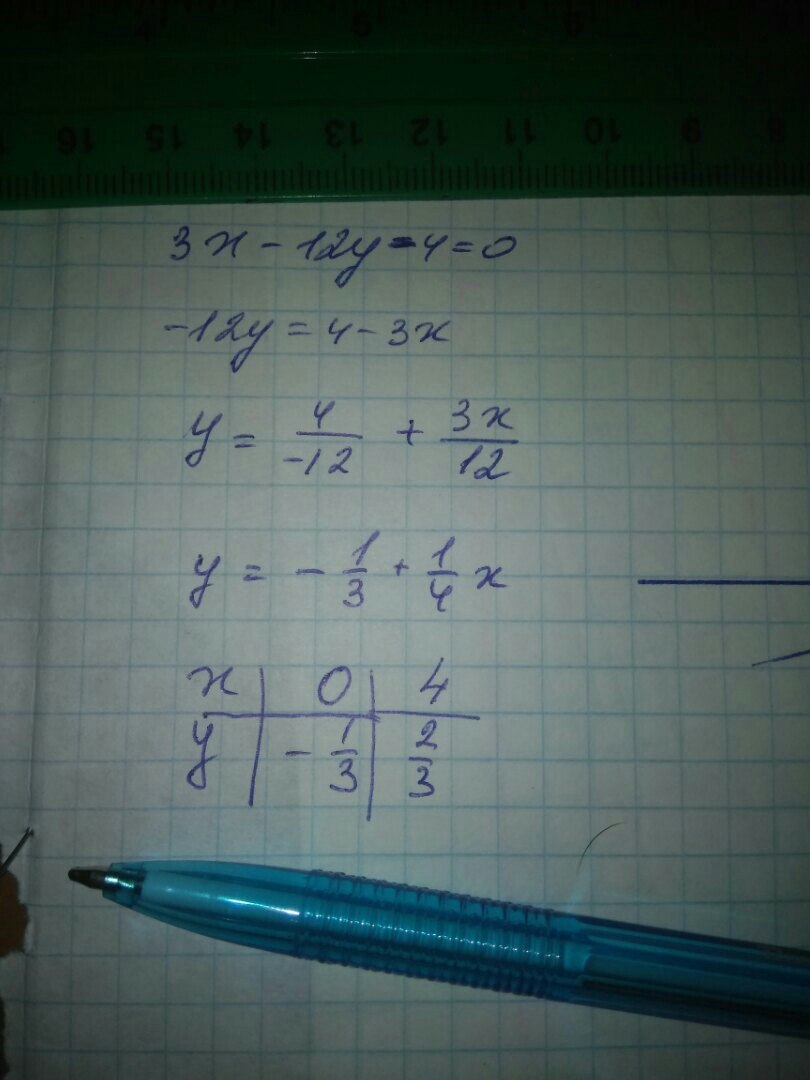 16 15 14 13 12 11 10 9 8
3x - 12y - 4 = 0
-12y = 4 - 3x
y = 4/-12 + 3x/12
y = - 1/3 + 1/4 x
x | 0 | 4
y | - 1/3 | 2/3